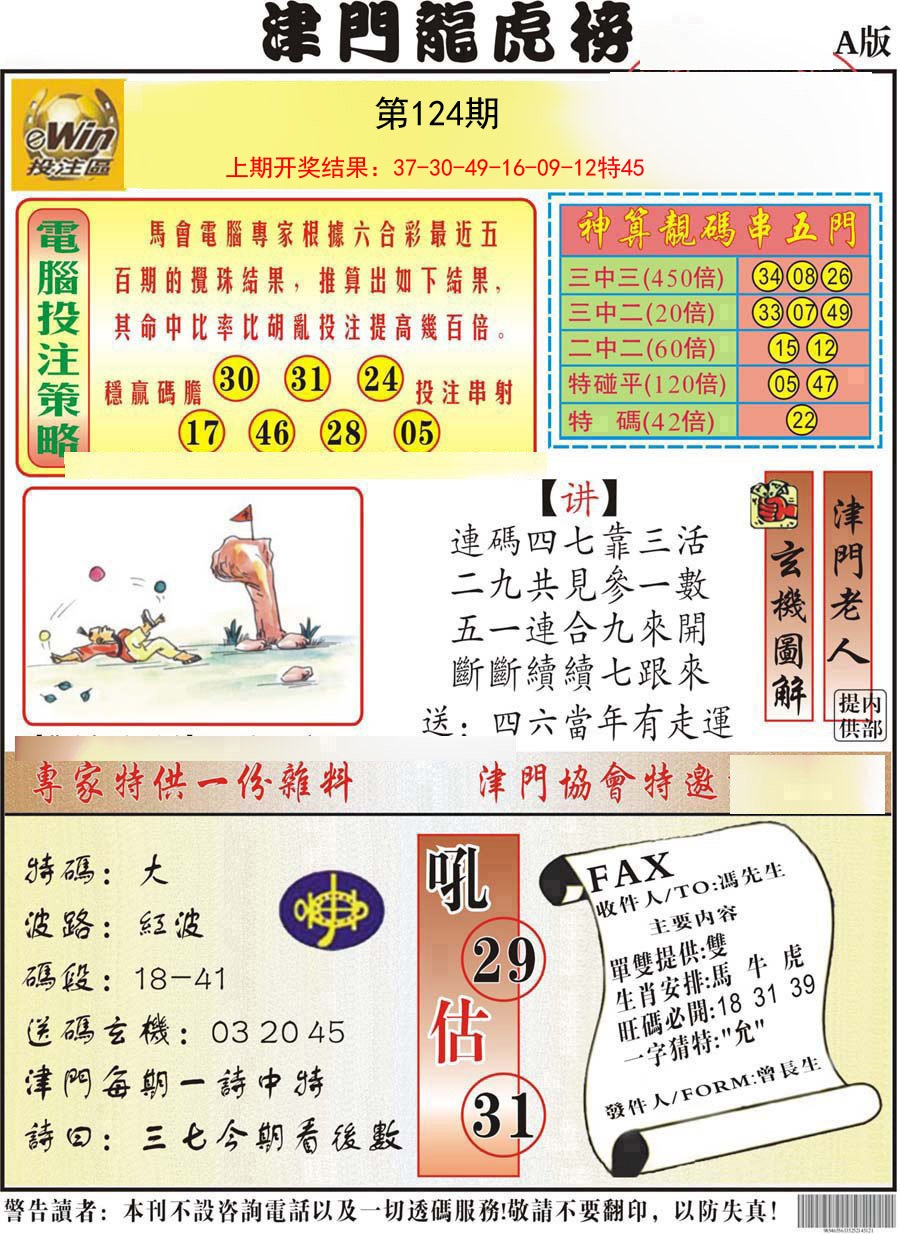 津門龍虎榜
A版
eWin
投注區
第124期
上期开奖结果：37-30-49-16-09-12特45
電腦投注策略
馬會電腦專家根據六合彩最近五
百期的攪珠結果，推算出如下結果，
其命中比率比胡亂投注提高幾百倍。
穩贏碼膽 30 31 24 投注串射
17 46 28 05
神算靚碼串五門
三中三(450倍) 34 08 26
三中二(20倍) 33 07 49
二中二(60倍) 15 12
特碰平(120倍) 05 47
特 碼(42倍) 22
【讲】
連碼四七靠三活
二九共見參一數
五一連合九來開
斷斷續續七跟來
送：四六當年有走運
玄機圖解
津門老人
内部提供
專家特供一份雜料
津門協會特邀
特碼：大
波路：紅波
碼段：18-41
送碼玄機：03 20 45
津門每期一詩中特
詩曰：三七今期看後數
吼
29
估
31
FAX
收件人/TO:馮先生
主要内容
單雙提供:雙
生肖安排:馬 牛 虎
旺碼必開:18 31 39
一字猜特:"允"
發件人/FORM:曾長生
警告讀者：本刊不設咨詢電話以及一切透碼服務!敬請不要翻印，以防失真！